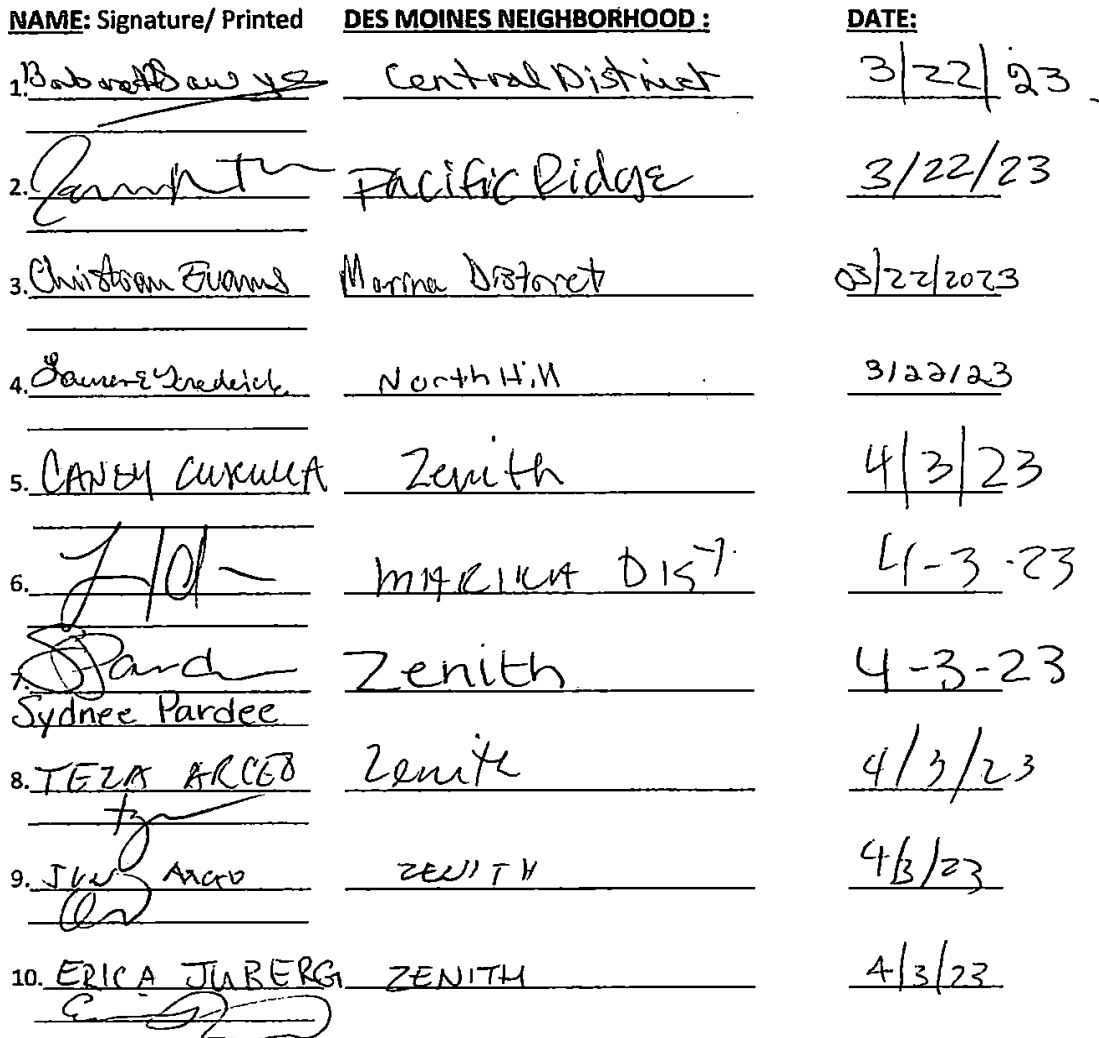 NAME: Signature/ Printed DES MOINES NEIGHBORHOOD : DATE:
1. Central District 3/22/23
2. Pacific Ridge 3/22/23
3. Christian Evans Marina District 03/22/2023
4. Frederick North Hill 3/22/23
5. CANDY Zenith 4/3/23
6. MARINA DIST. 4-3-23
7. Zenith 4-3-23
Sydnee Pardee
8. TEZA ARCEO Zenith 4/3/23
9. JUN Arceo ZENITH 4/3/23
10. ERICA JUBERG ZENITH 4/3/23